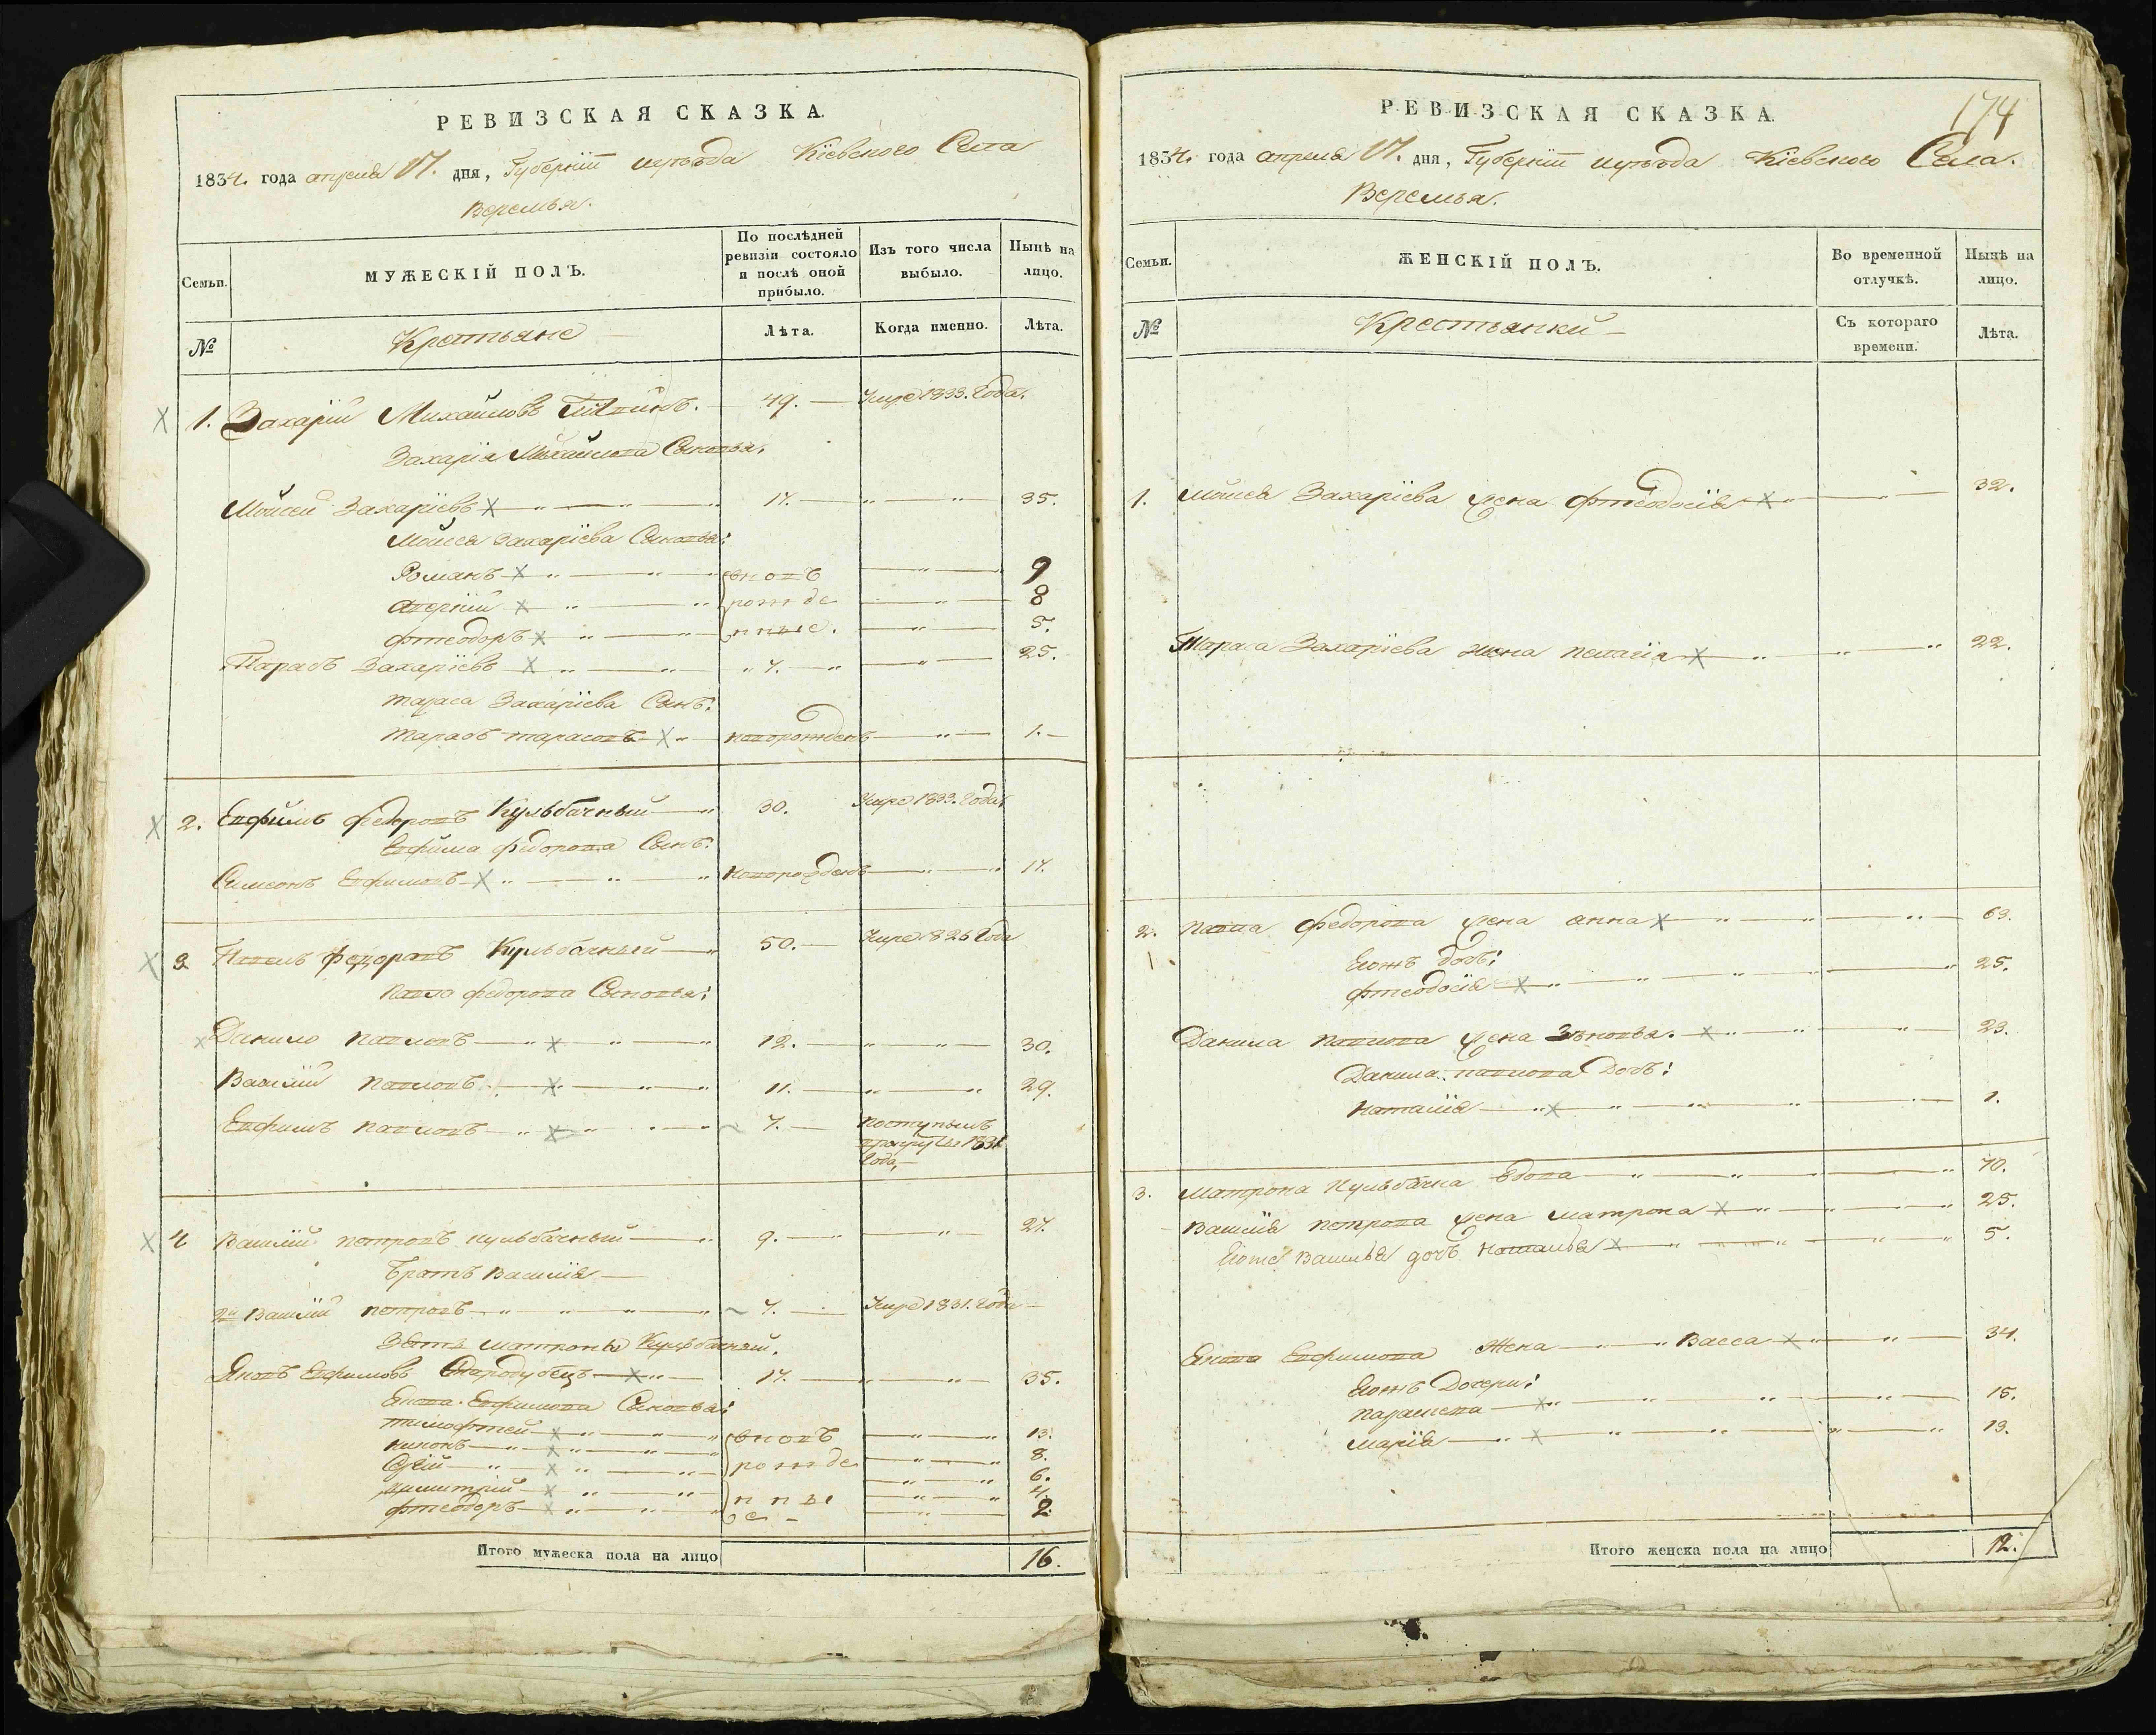 РЕВИЗСКАЯ СКАЗКА.
1834. года апреля 17. дня, Губернїи и уѣзда Кїевского Села
Веремья.
Семьи.
МУЖЕСКІЙ ПОЛЪ.
По послѣдней ревизіи состояло и послѣ оной прибыло.
Изъ того числа выбыло.
Нынѣ на лицо.
№
Крестьяне
Лѣта.
Когда именно.
Лѣта.
1. Захарїй Михайловъ 49. Умре 1833. Года.
Захарїя Михайлова Сыновья,
Мойсей Захарїевъ 17. 35.
Мойсея Захарїева Сыновья:
Романъ вновъ 9
Аверкїй рожде 8
Фтеодоръ нные. 5.
Тарасъ Захарїевъ 7. 25.
Тараса Захарїева Сынъ:
Тарасъ Тарасовъ новорожденъ 1.
2. Евфимъ Федоровъ Кульбачный 30. Умре 1833. Года,
Евфима Федорова Сынъ:
Симеонъ Евфимовъ новорожденъ 17.
3 Павелъ Федоровъ Кульбачный 50. Умре 1826 Года
Павла Федорова Сыновья:
Данило Павловъ 12. 30.
Василїй Павловъ 11. 29.
Евфимъ Павловъ 7. Поступилъ
в рекруты 1831
Года,
4 Василїй Петровъ Кульбачный 9. 27.
Братъ Василїя
2й Василїй Петровъ 7. Умре 1831. Года
Зять Матроны Кульбачной,
Яковъ Евфимовъ Стародубецъ 17. 35.
Якова Евфимова Сыновья:
Тимофтей вновъ 13.
Никонъ 8.
рожде 6.
Димитрїй нны 4.
Фтеодоръ е 2.
Итого мужеска пола на лицо 16.
174
РЕВИЗСКАЯ СКАЗКА.
1834. года апреля 17. дня, Губернїи и уѣзда Кїевского Села.
Веремья.
Семьи.
ЖЕНСКІЙ ПОЛЪ.
Во временной отлучкѣ.
Нынѣ на лицо.
№
Крестьянки
Съ котораго времени.
Лѣта.
1. Мойсея Захарїева жена Фтеодосїя 32.
Тараса Захарїева жена Пелагїя 22.
2. Павла Федорова жена Анна 63.
Ѣхожъ дочь:
Фтеодосїя 25.
Данила Павлова жена Зѣновья. 23.
Данила Павлова Дочь:
Наталїя 1.
3. Матрона Кульбачка вдова 70.
Василїя Петрова жена Матрона 25.
Егоже Василья дочъ 5.
Якова Евфимова Жена Васса 34.
Ѣхожъ Дочери:
Параскева 15.
Марїя 13.
Итого женска пола на лицо 12.